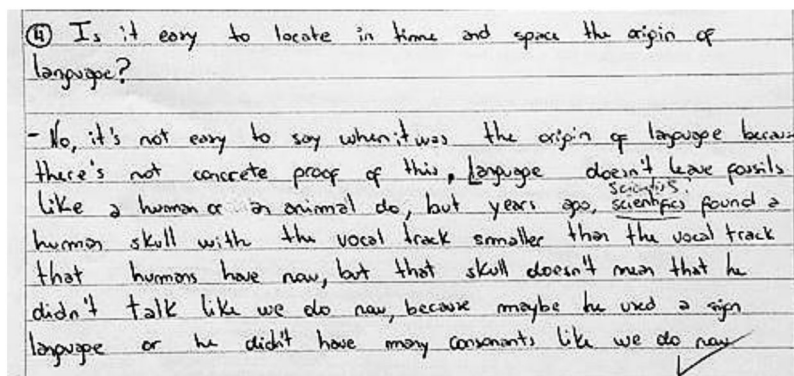 ④ Is it easy to locate in time and space the origin of
language?
- No, it's not easy to say when it was the origin of language becaus
there's not concrete proof of this, Language doesn't leave fossils
scientists
like a human or an animal do, but years ago, scientifics found a
human skull with the vocal track smaller than the vocal track
that humans have now, but that skull doesn't mean that he
didn't talk like we do now, because maybe he used a sign
language or he didn't have many consonants like we do now